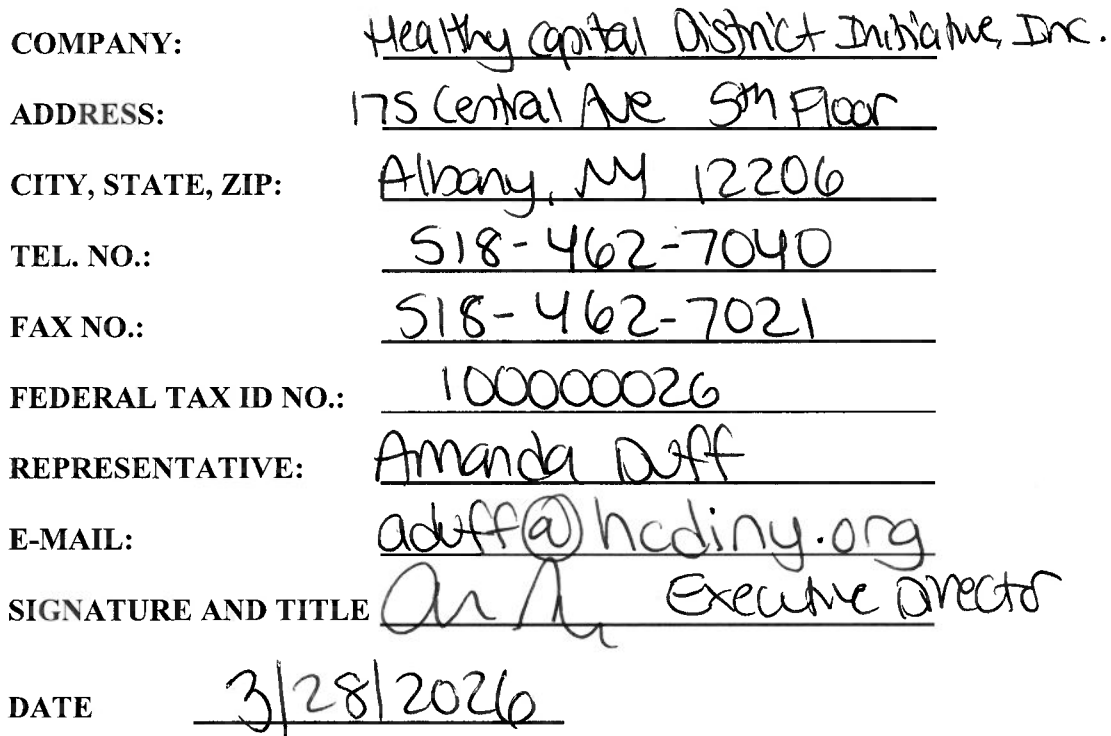 COMPANY: Healthy Capital District Initiative, Inc.
ADDRESS: 175 Central Ave 5th Floor
CITY, STATE, ZIP: Albany, NY 12206
TEL. NO.: 518-462-7040
FAX NO.: 518-462-7021
FEDERAL TAX ID NO.: 100000026
REPRESENTATIVE: Amanda Duff
E-MAIL: aduff@hcdiny.org
SIGNATURE AND TITLE Executive Director
DATE 3/28/2026